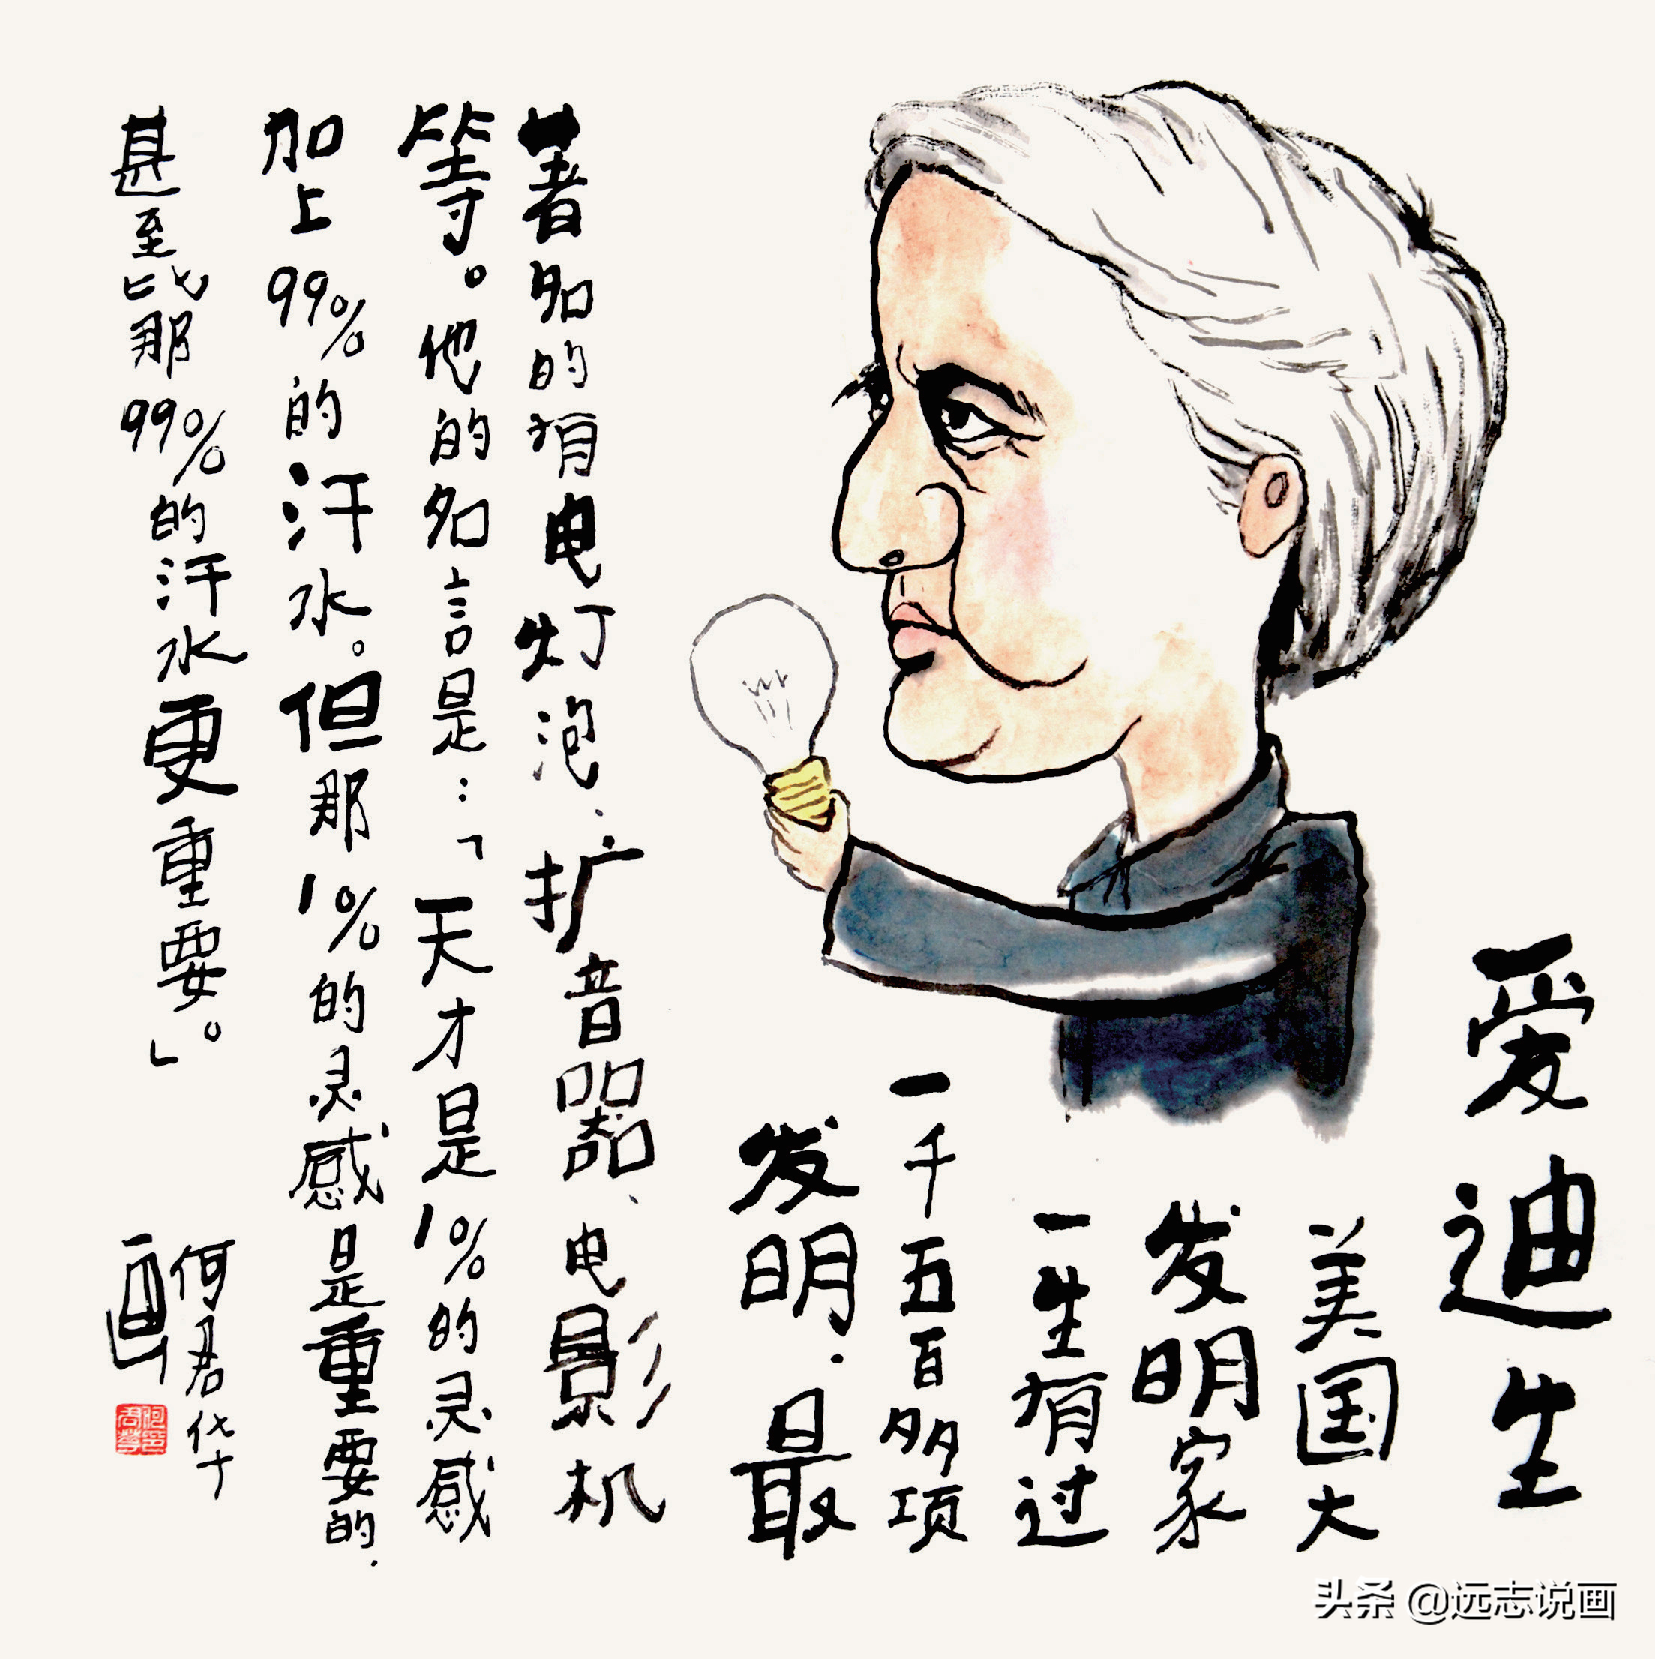 爱迪生
美国大
发明家
一生有过
一千五百多项
发明.最
著名的有电灯泡、扩音器、电影机
等。他的名言是:「天才是1%的灵感
加上99%的汗水。但那1%的灵感是重要的.
甚至比那99%的汗水更重要。」
何君华
画
头条 @远志说画